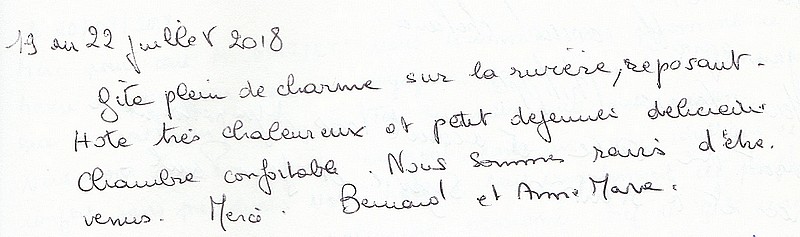 19 au 22 juillet 2018
Gîte plein de charme sur la rivière, reposant.
Hote très chaleureux et petit dejeuner delicieux
Chambre confortable. Nous sommes ravis d'être.
venus. Merci. Bernard et Anne Marie.